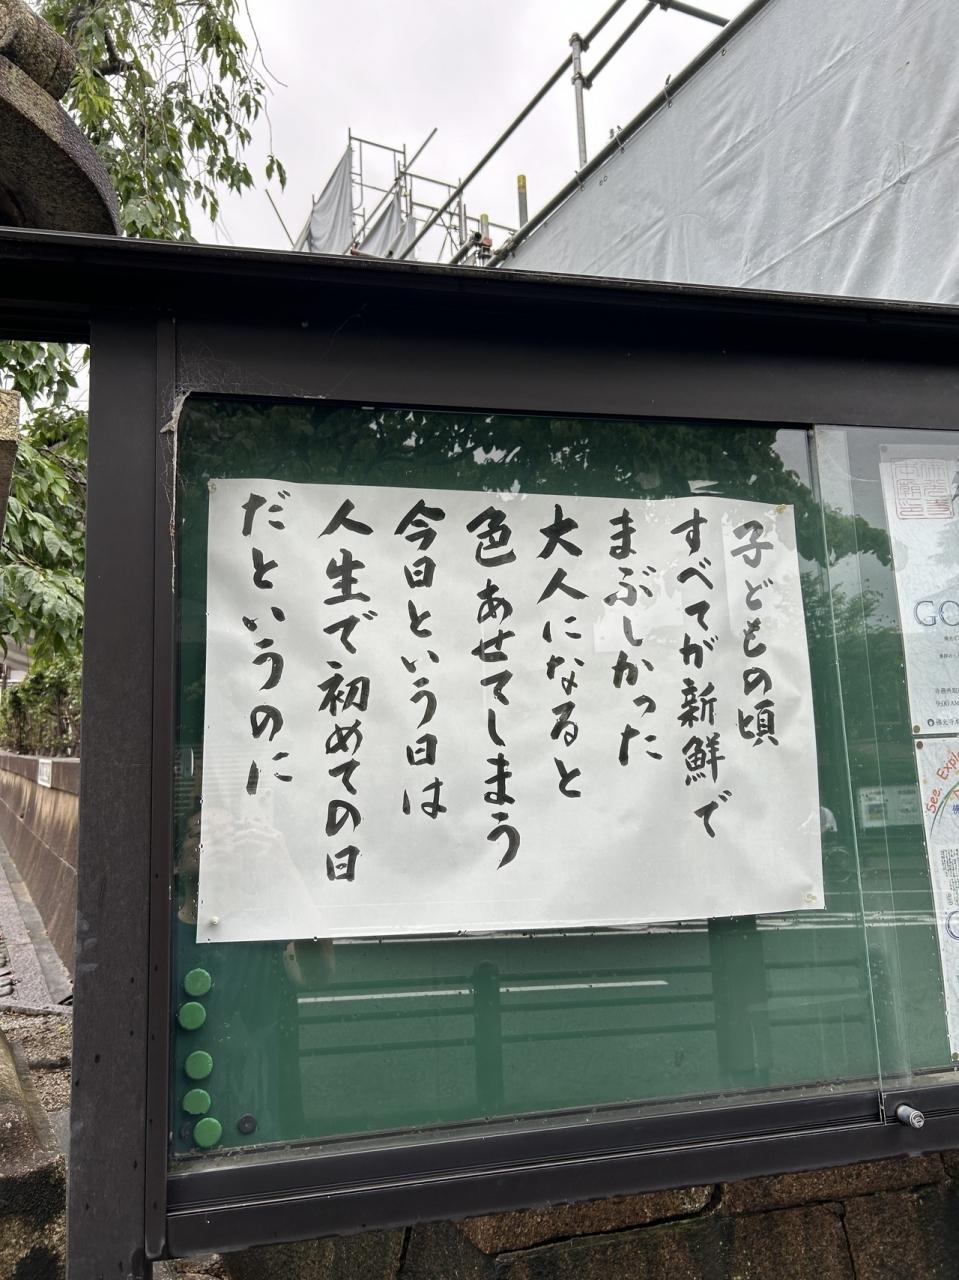 子どもの頃
すべてが新鮮で
まぶしかった
大人になると
色あせてしまう
今日という日は
人生で初めての日
だというのに
GO
9:00 AM
See, Expl